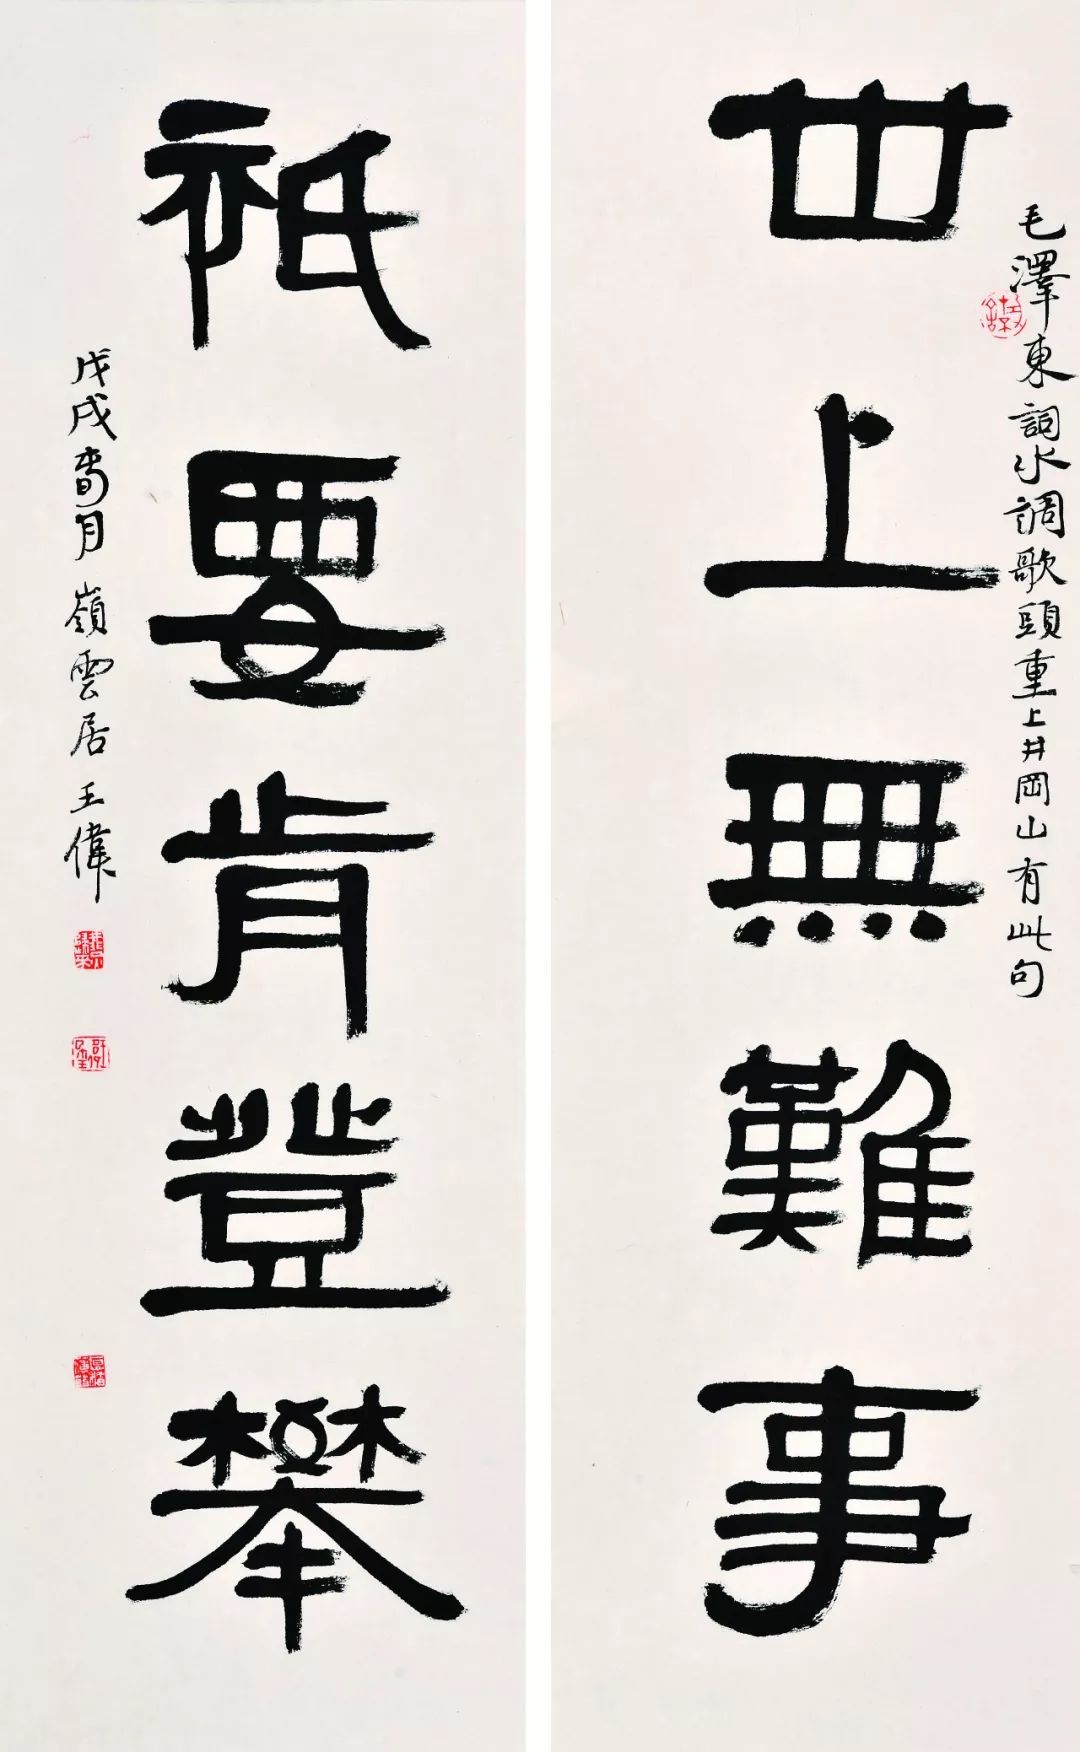 毛澤東詞水調歌頭重上井岡山有此句
世上無難事
祇要肯登攀
戊戌旾月嶺雲居王偉